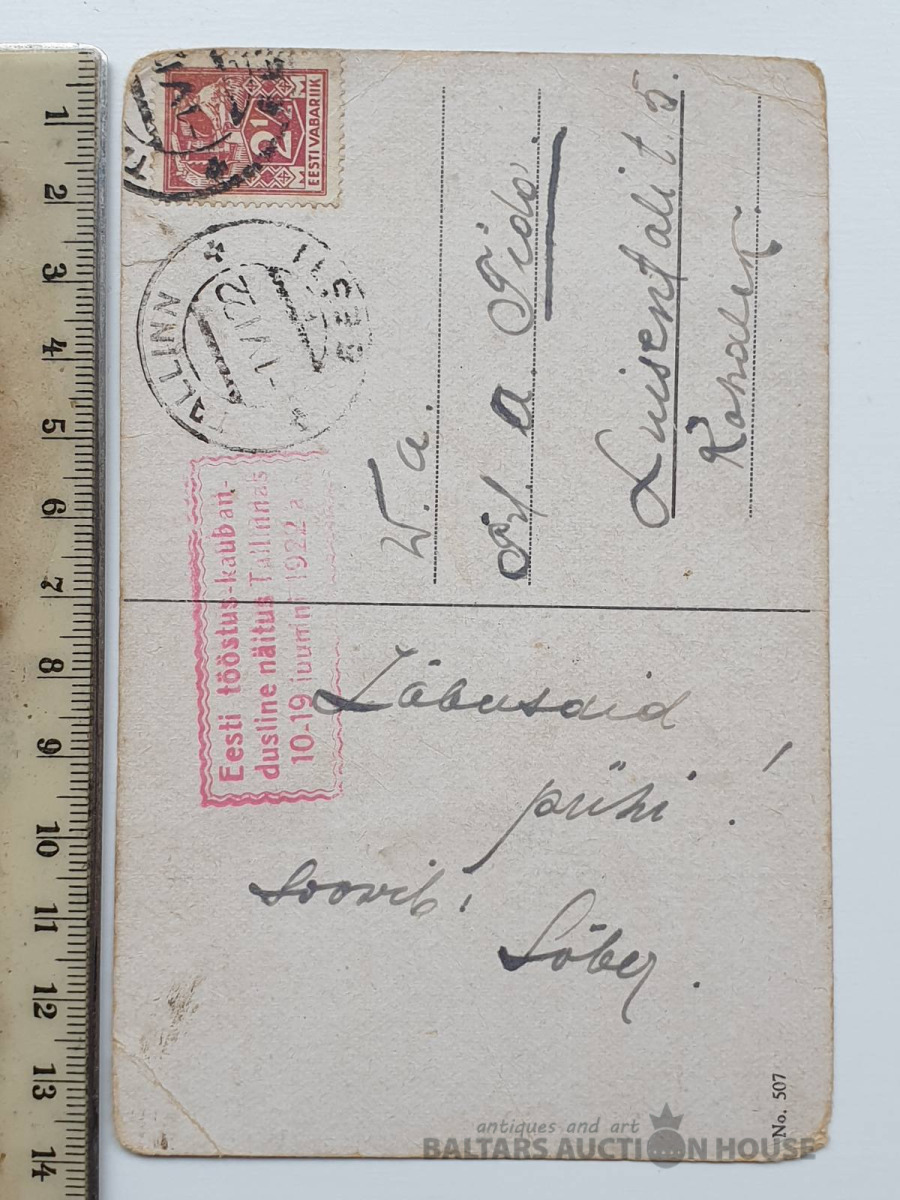 EESTI VABARIIK
2½
TALLINN
EESTI
1 VI 22
Eesti tööstus-kauban-
dusline näitus Tallinnas
10-19 juunini 1922 a
W. a.
Prl. A. Tido.
Luisentali t. 5.
Kohalik
Lõbusaid
pühi!
soovib:
Sõber.
No. 507
antiques and art
BALTARS AUCTION HOUSE
1
2
3
4
5
6
7
8
9
10
11
12
13
14